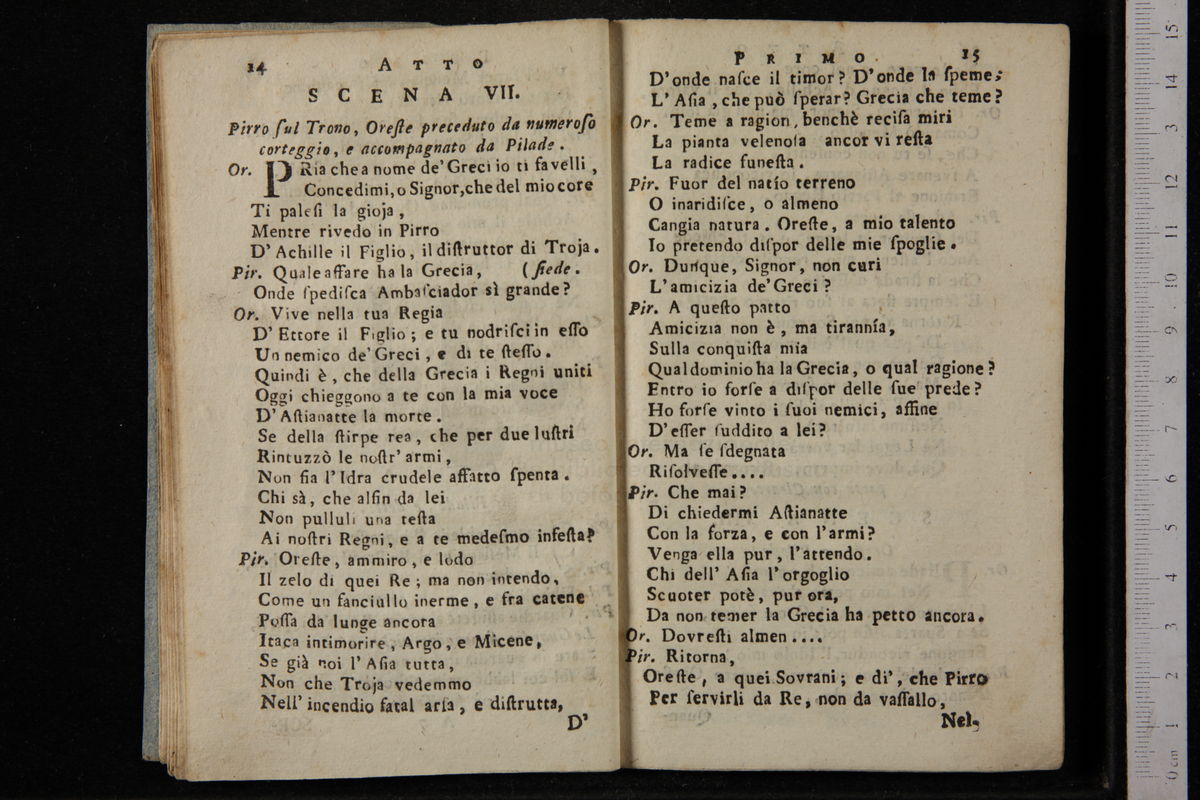 14 ATTO
SCENA VII.
Pirro ſul Trono, Oreſte preceduto da numeroſo
corteggio, e accompagnato da Pilade.
Or. PRia che a nome de' Greci io ti favelli,
Concedimi, o Signor, che del mio core
Ti paleſi la gioja,
Mentre rivedo in Pirro
D' Achille il Figlio, il diſtruttor di Troja.
Pir. Quale affare ha la Grecia, (ſiede.
Onde ſpediſca Ambaſciador sì grande?
Or. Vive nella tua Regia
D' Ettore il Figlio; e tu nodriſci in eſſo
Un nemico de' Greci, e di te ſteſſo.
Quindi è, che della Grecia i Regni uniti
Oggi chieggono a te con la mia voce
D' Aſtianatte la morte.
Se della ſtirpe rea, che per due luſtri
Rintuzzò le noſtr' armi,
Non ſia l' Idra crudele affatto ſpenta.
Chi sà, che alfin da lei
Non pulluli una teſta
Ai noſtri Regni, e a te medeſmo infeſta?
Pir. Oreſte, ammiro, e lodo
Il zelo di quei Re; ma non intendo,
Come un fanciullo inerme, e fra catene
Poſſa da lunge ancora
Itaca intimorire, Argo, e Micene,
Se già noi l' Aſia tutta,
Non che Troja vedemmo
Nell' incendio fatal arſa, e diſtrutta,
D'
PRIMO. 15
D' onde naſce il timor? D' onde la ſpeme;
L' Aſia, che può ſperar? Grecia che teme?
Or. Teme a ragion, benchè reciſa miri
La pianta velenoſa ancor vi reſta
La radice funeſta.
Pir. Fuor del natío terreno
O inaridiſce, o almeno
Cangia natura. Oreſte, a mio talento
Io pretendo diſpor delle mie ſpoglie.
Or. Dunque, Signor, non curi
L' amicizia de' Greci?
Pir. A queſto patto
Amicizia non è, ma tirannía,
Sulla conquiſta mia
Qual dominio ha la Grecia, o qual ragione?
Entro io forſe a diſpor delle ſue prede?
Ho forſe vinto i ſuoi nemici, affine
D' eſſer ſuddito a lei?
Or. Ma ſe ſdegnata
Riſolveſſe....
Pir. Che mai?
Di chiedermi Aſtianatte
Con la forza, e con l' armi?
Venga ella pur, l' attendo.
Chi dell' Aſia l' orgoglio
Scuoter potè, pur ora,
Da non temer la Grecia ha petto ancora.
Or. Dovreſti almen....
Pir. Ritorna,
Oreſte, a quei Sovrani; e di', che Pirro
Per ſervirli da Re, non da vaſſallo,
Nel,
0 cm 1 2 3 4 5 6 7 8 9 10 11 12 13 14 15